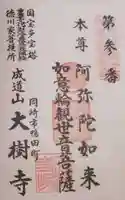 第参番
本尊 阿弥陀如来
如意輪観世音菩薩
国宝多宝塔
徳川家菩提所
岡崎市鴨田町
成道山 大樹寺